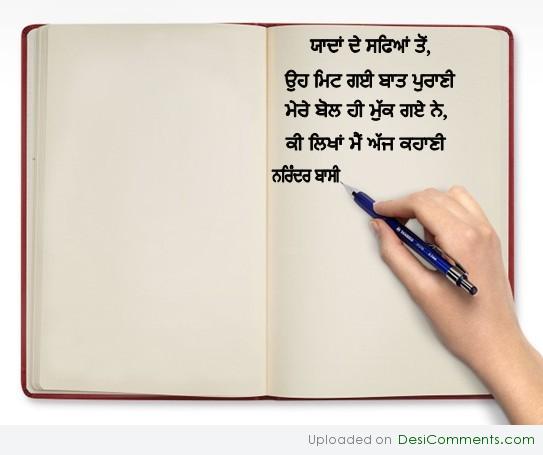 ਯਾਦਾਂ ਦੇ ਸਫਿਆਂ ਤੋਂ,
ਉਹ ਮਿਟ ਗਈ ਬਾਤ ਪੁਰਾਣੀ
ਮੇਰੇ ਬੋਲ ਹੀ ਮੁੱਕ ਗਏ ਨੇ,
ਕੀ ਲਿਖਾਂ ਮੈਂ ਅੱਜ ਕਹਾਣੀ
ਨਰਿੰਦਰ ਬਾਸੀ
Uploaded on DesiComments.com